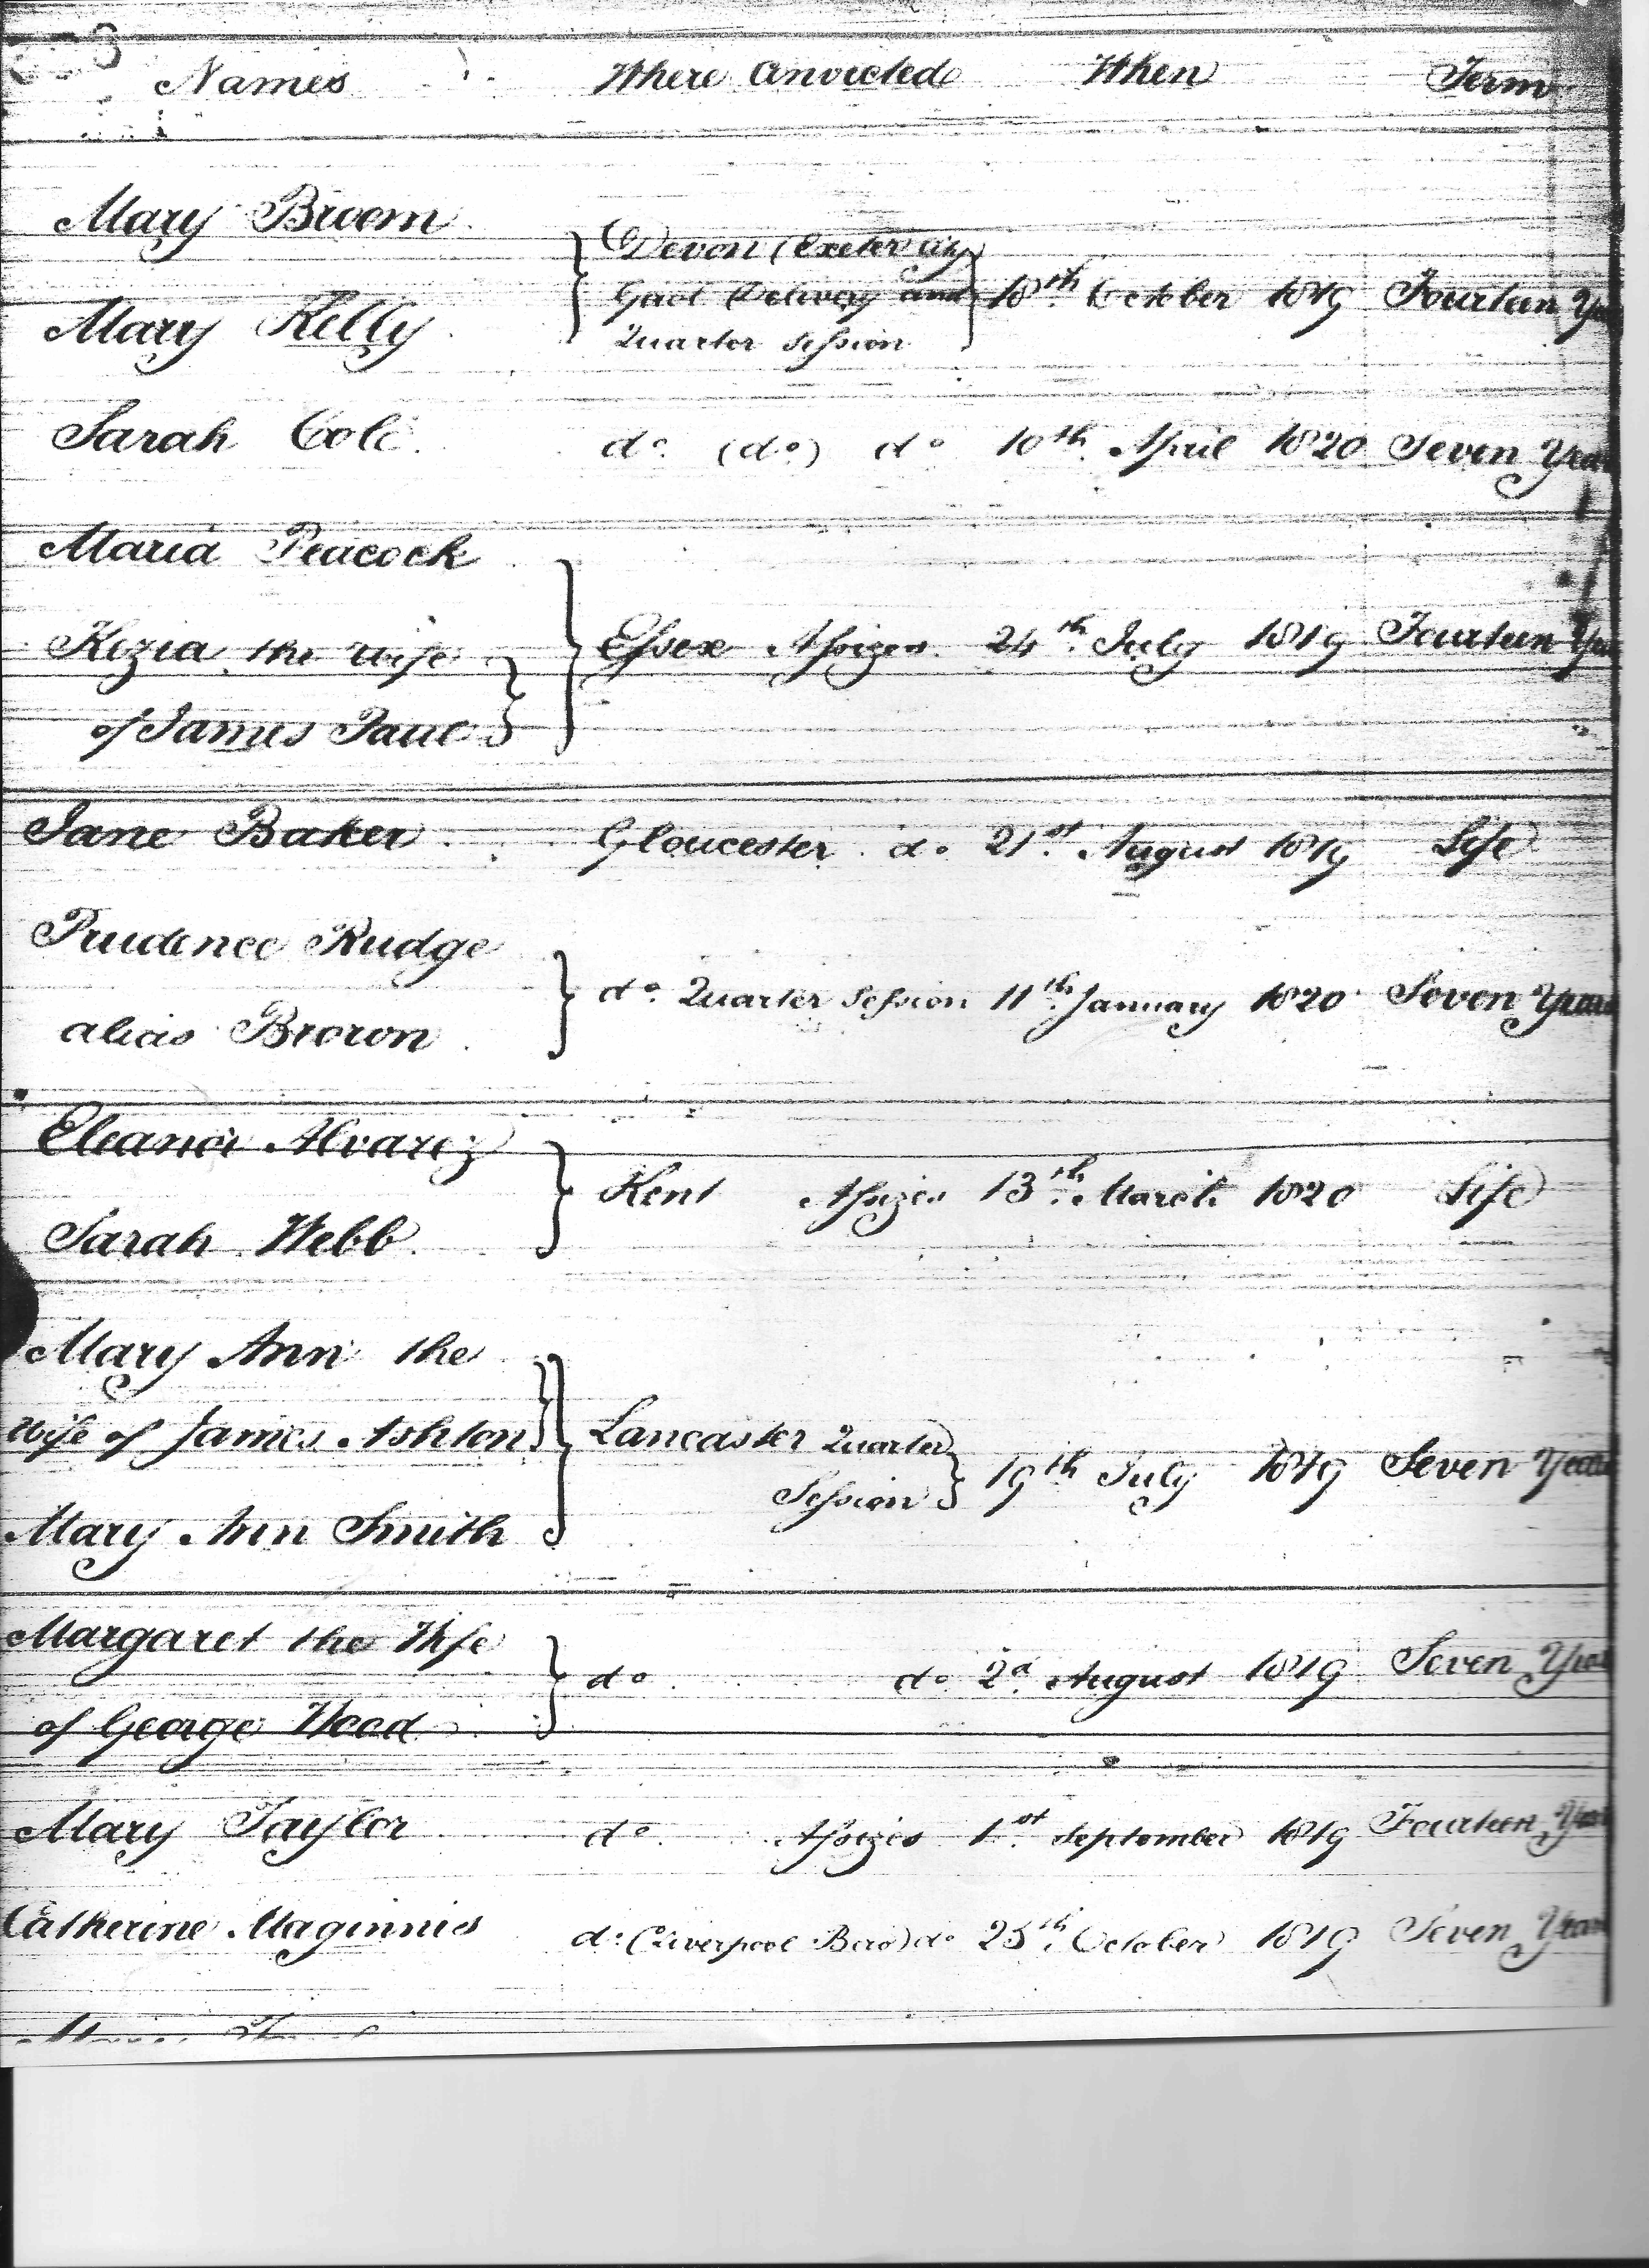 Names Where Convicted When Term
Mary Broom
Devon (Exeter City)
Gaol Delivery and 18th October 1819 Fourteen
Mary Kelly
Quarter Session
Sarah Cole do. (do) do 10th April 1820 Seven Years
Maria Peacock
Kezia the wife Essex Assizes 24th July 1819 Fourteen
of James Paul
Jane Baker Gloucester do 21st August 1819 Life
Prudence Rudge
do. Quarter Session 11th January 1820 Seven Years
alias Brown
Eleanor Alvarez
Kent Assizes 13th March 1820 Life
Sarah Webb
Mary Ann the
Wife of James Ashton Lancaster Quarter
Session 19th July 1819 Seven Years
Mary Ann Smith
Margaret the Wife
do do 2d August 1819 Seven Years
of George Wood
Mary Taylor do. Assizes 1st September 1819 Fourteen Years
Catherine Maginnis do (Liverpool Boro) do 25th October 1819 Seven Years